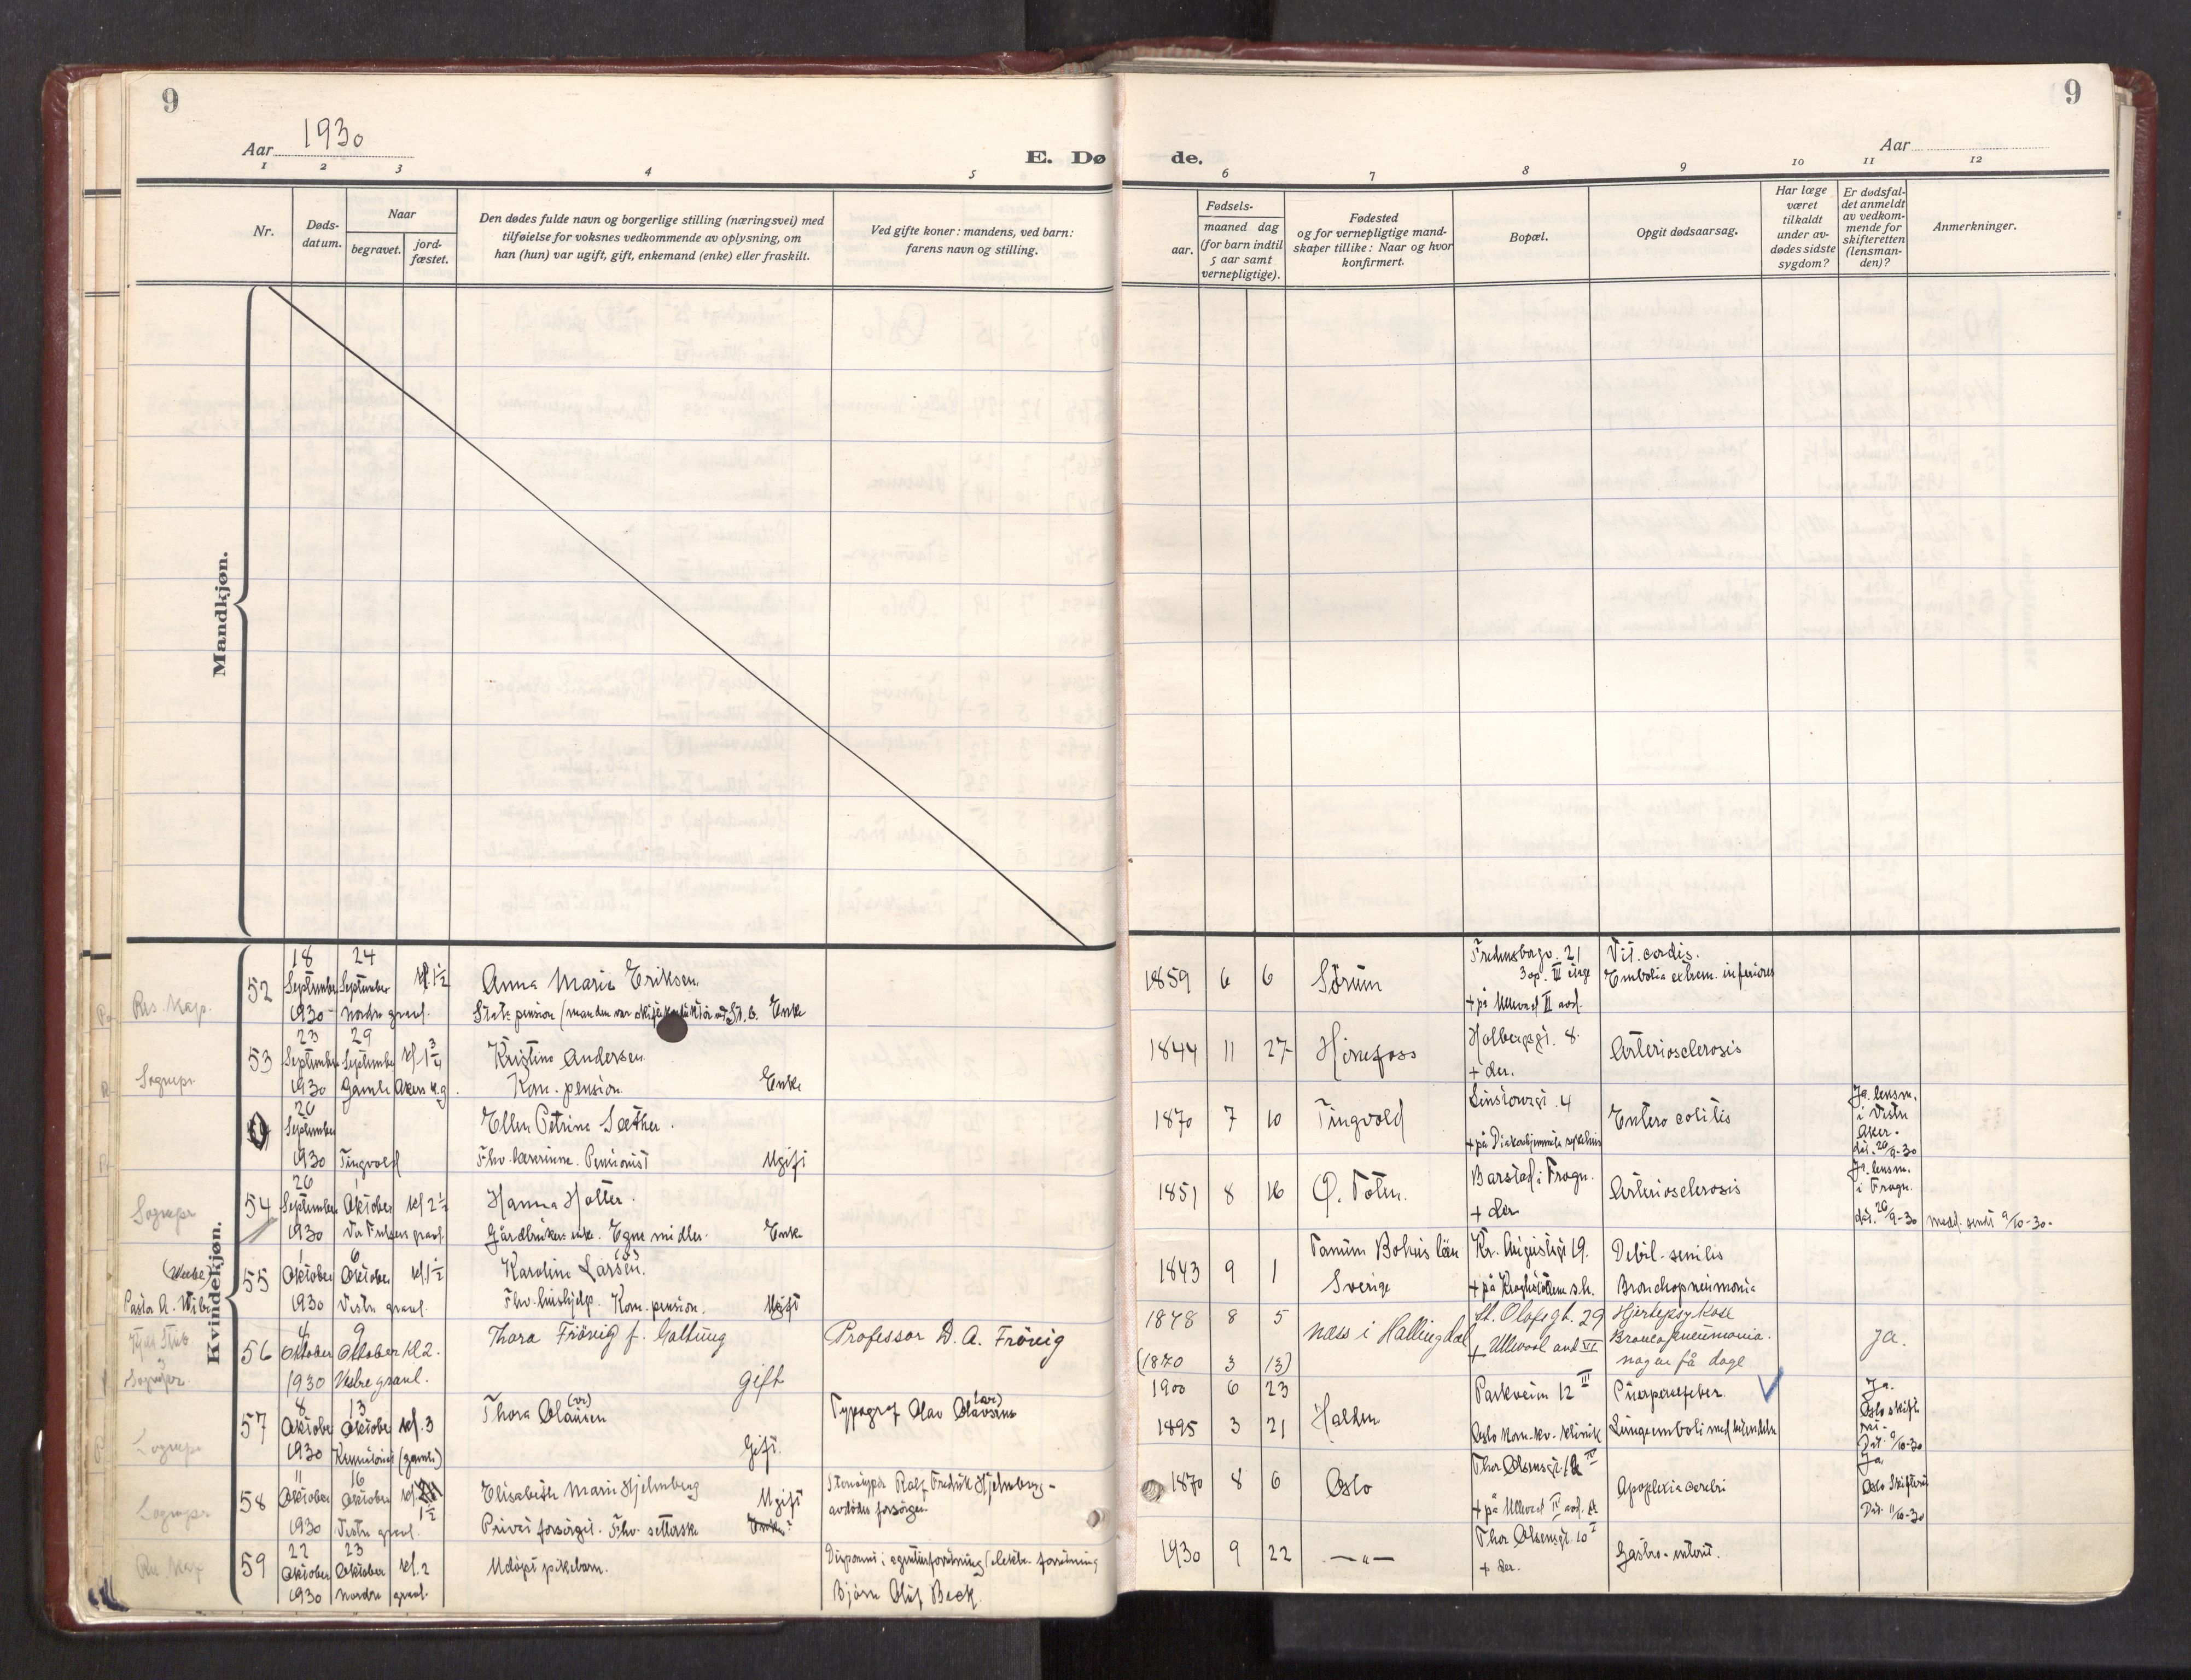 9
9
Aar 1930
E. Dø
de.
Aar
1
2
3
4
5
6
7
8
9
10
11
12
Nr.
Døds-
datum.
Naar
begravet.
jord-
fæstet.
Den dødes fulde navn og borgerlige stilling (næringsvei) med
tilføielse for voksnes vedkommende av oplysning, om
han (hun) var ugift, gift, enkemand (enke) eller fraskilt.
Ved gifte koner: mandens, ved barn:
farens navn og stilling.
Fødsels-
aar.
maaned dag
(for barn indtil
5 aar samt
vernepligtige).
Fødested
og for vernepligtige mand-
skaper tillike: Naar og hvor
konfirmert.
Bopæl.
Opgit dødsaarsag.
Har læge
været
tilkaldt
under av-
dødes sidste
sygdom?
Er dødsfal-
det anmeldt
av vedkom-
mende for
skifteretten
(lensman-
den)?
Anmerkninger.
Mandkjøn.
Kvindekjøn.
Res. Kap.
52
18
September
1930
24
September
Nordre gravl.
kl. 1½
Anna Marie Eriksen
Stats pension (manden var Enke
1859 6 6
Sørum
21
3 op. III
+ på Ullevaal II avd.
Vit. cordis.
Embolia extrem. inferiores
Sognepr.
53
23
September
1930
29
September
Gamle Akers k.g.
kl. 1¾
Kristine Andersen
Kom. pension. Enke
1844 11 27
Hønefoss
Holbergsgt. 8.
+ der.
Arteriosclerosis
0
26
September
1930
Tingvold
Ellen Petrine Sæther.
Fhv. lærerinne. Pensionist Ugift
1870 7 10
Tingvold
Linstowsgt. 4
+ på Diakonhjemmets sykehus
Entero colitis
Ja. lensm.
i Vestre
Aker.
dat. 26/9-30
Sognepr
54
26
September
1930
1
Oktober
Vor Frelsers gravl.
kl 2½
Hanna Holter.
Gårdbruker-enke. Egne midler. Enke
1851 8 16
Ø. Toten.
Barstad i Frogn.
+ der
Arteriosclerosis
Ja. lensm.
i Frogn.
dat. 26/9-30
medd. sendt 9/10-30.
Pastor A. Wibe
55
1
Oktober
1930
6
Oktober
Vestre gravl.
kl. 1½
Karoline Larsen.
Fhv. hushjelp. Kom. pension. Ugift
1843 9 1
Tanum Bohus län
Sverige
Kr. Augustsgt 19.
+ på Krohgstøttens s.h.
Debil. senilis
Bronchopneumonia
Sognepr.
56
4
Oktober
1930
9
Oktober
Vestre gravl.
kl 2.
Thora Frövig f. Galtung
gift
Professor D. A. Frövig
1878 8 5
(1870 3 13)
Næss i Hallingdal
St. Olafs gt. 29
+ Ullevaal avd VI
Hjertepsykose
Broncopneumonia.
nogen få dage
Ja.
Sognepr
57
8
Oktober
1930
13
Oktober
Krematoriet (gamle)
kl. 3
Thora Olausen
Gift.
Typograf Olav Olavsens
1900 6 23
1895 3 21
Halden
Parkveien 12 III
Oslo kom. kv. klinik
Puerperalfeber.
Lungeemboli med
Ja.
Oslo skifte
ret.
Dat. 9/10-30
Sognepr
58
11
Oktober
1930
16
Oktober
Vestre gravl.
kl.
1½
Elisabeth Marie Hjelmberg Ugift
Privat forsørget. Fhv. setterske Enke?
Stenotypør Ralf Fredrik Hjelmberg -
avdødes forsørger.
1870 8 6
Oslo
Thor Olsensgt. IV
+ på Ullevaal IV avd.
Apoplexia cerebri
Ja
Oslo Skifteret
Dat. 11/10-30
Res. Kap
59
22
Oktober
1930
23
Oktober
Nordre gravl.
kl. 2
Udøpt pikebarn.
Disponent i agenturforretning (elektr. forretning
Bjørn Olaf Beck.
1930 9 22
— " —
Thor Olsensgt. 10 I
+ der.
Gastro-enterit.